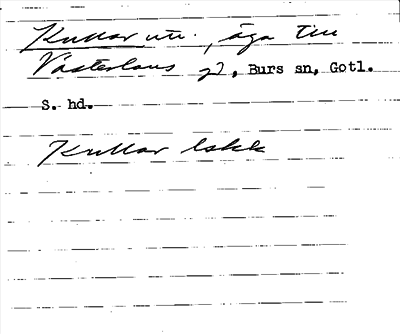 Kullar utr., äga till
Västerlaus gd, Burs sn, Gotl.
S. hd.
Kullar lskk